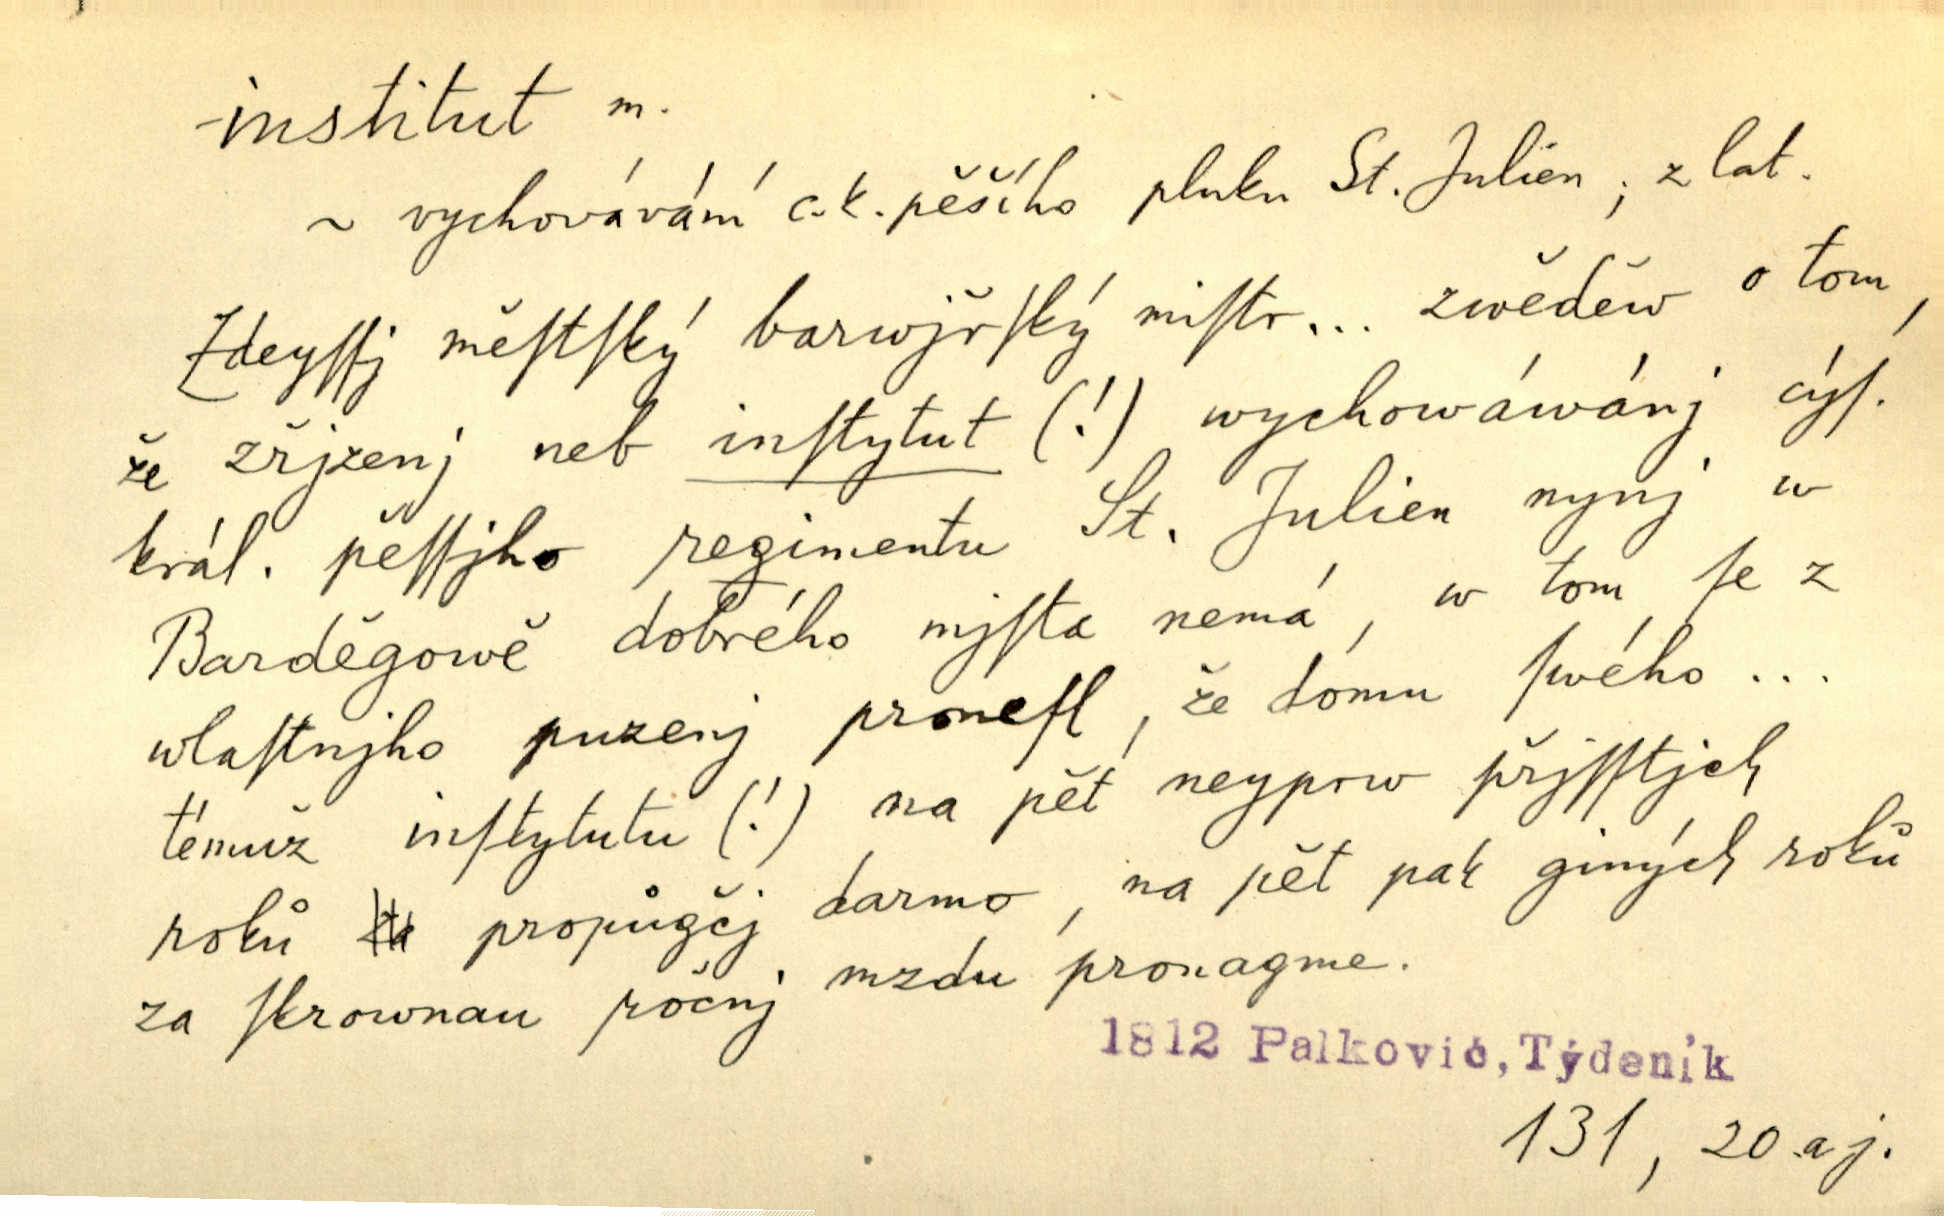 institut m.
~ vychovávání c.k. pěšího pluku St. Julien; z lat.
Zdeyſſj měſtſký barwjřſký miſtr... zwěděw o tom,
že zřjzenj neb inſtytut (!) wychowáwánj cýſ.
král. pěſſjho regimentu St. Julien nynj w
Barděgowě dobrého mjſta nemá, w tom ſe z
wlaſtnjho puzenj proneſl, že domu ſwého ...
témuž inſtytutu (!) na pět neyprw přjſſtjch
roků propůgčj darmo, na pět pak giných roků
za ſkrownau ročnj mzdu pronagme.
1812 Palkovič, Týdeník
131, 20 a j.